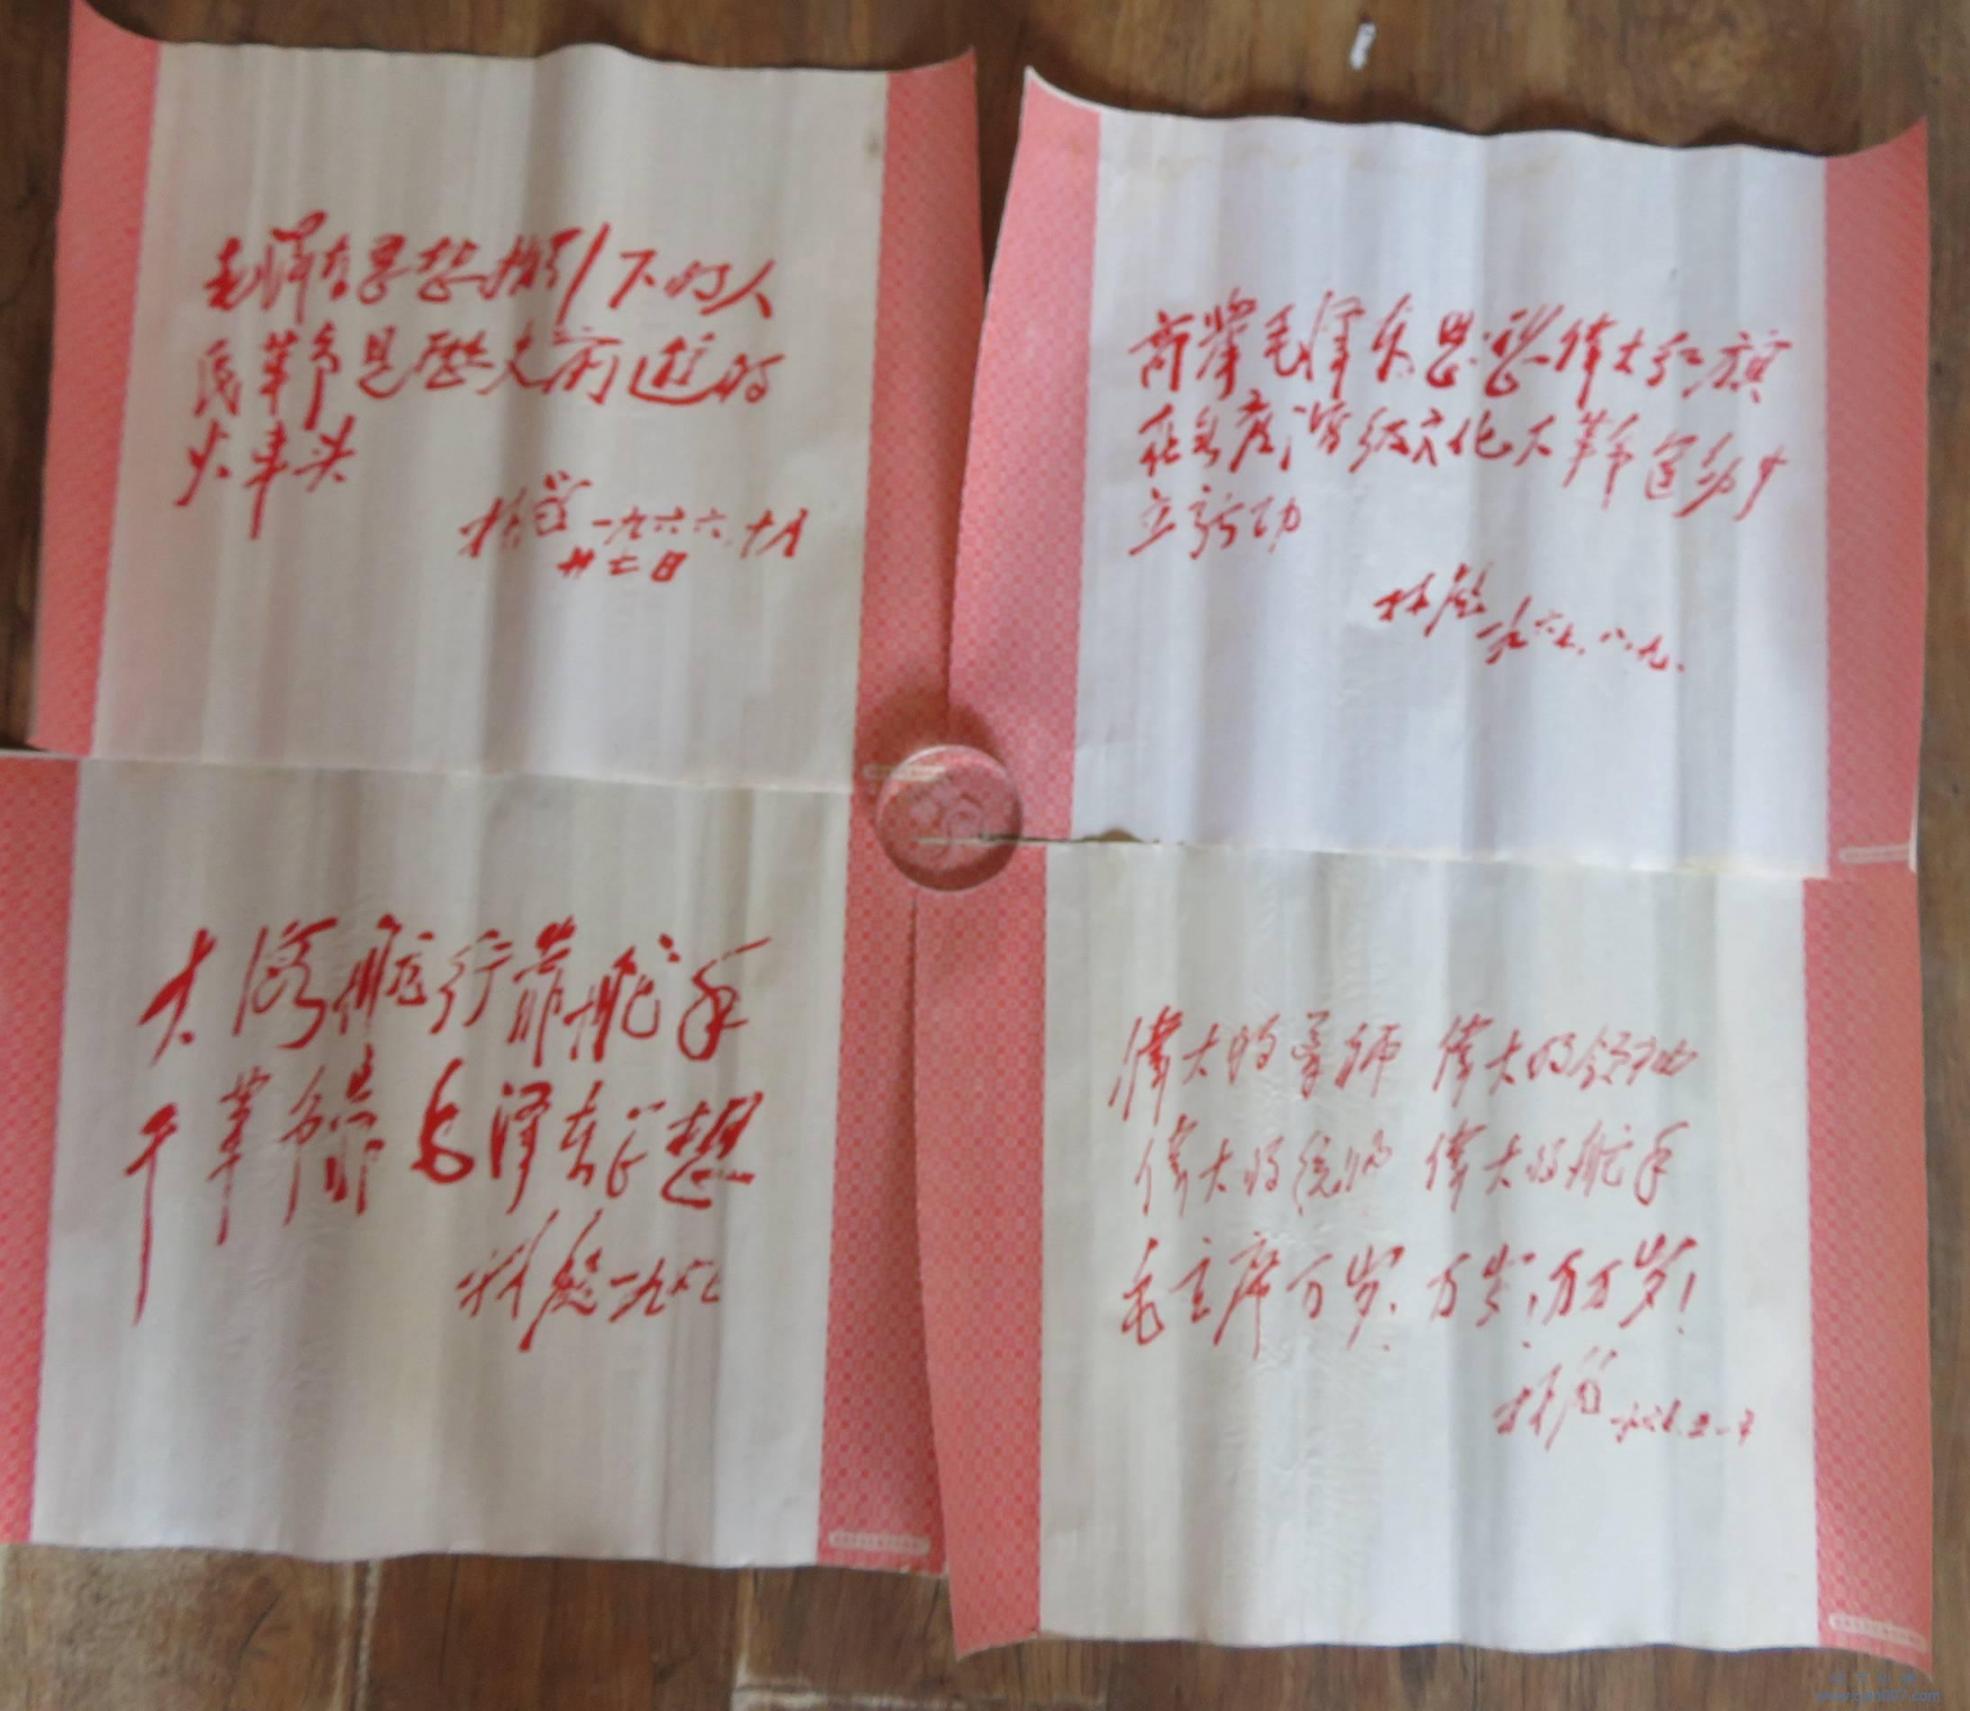 毛泽东思想指引下的人
民革命是歷史前进的
火车头
林彪 一九六六.十月
廿七日
高举毛泽东思想偉大红旗
在无产阶级文化大革命运动中
立新功
林彪 一九六七.八.九.
大海航行靠舵手
干革命靠毛泽东思想
林彪 一九六七
偉大的导师 偉大的领袖
偉大的统帅 偉大的舵手
毛主席万岁,万岁!万万岁!
林彪